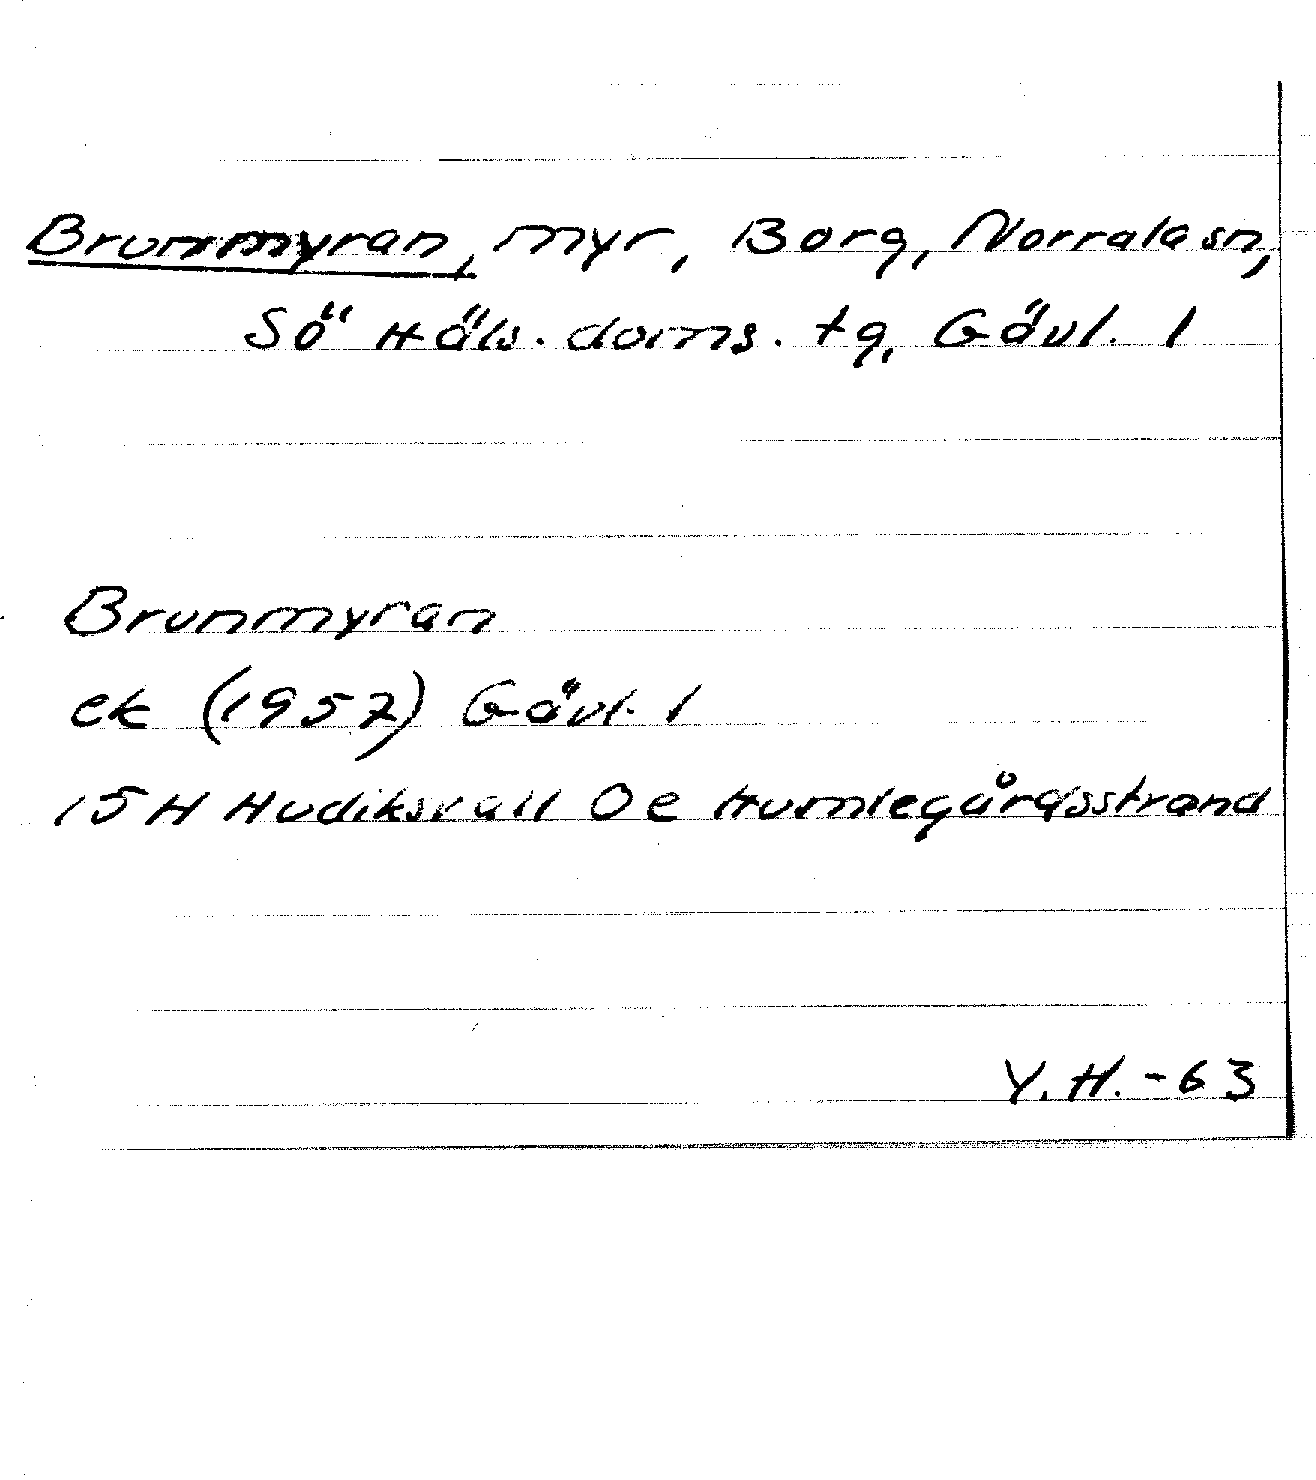 Brunmyran, myr, Borg, Norrala sn,
Sö Häls. doms. tg, Gävl. l
Brunmyran
ek (1957) Gävl. l
15H Hudiksvall 0e Humlegårdsstrand
Y.H.-63